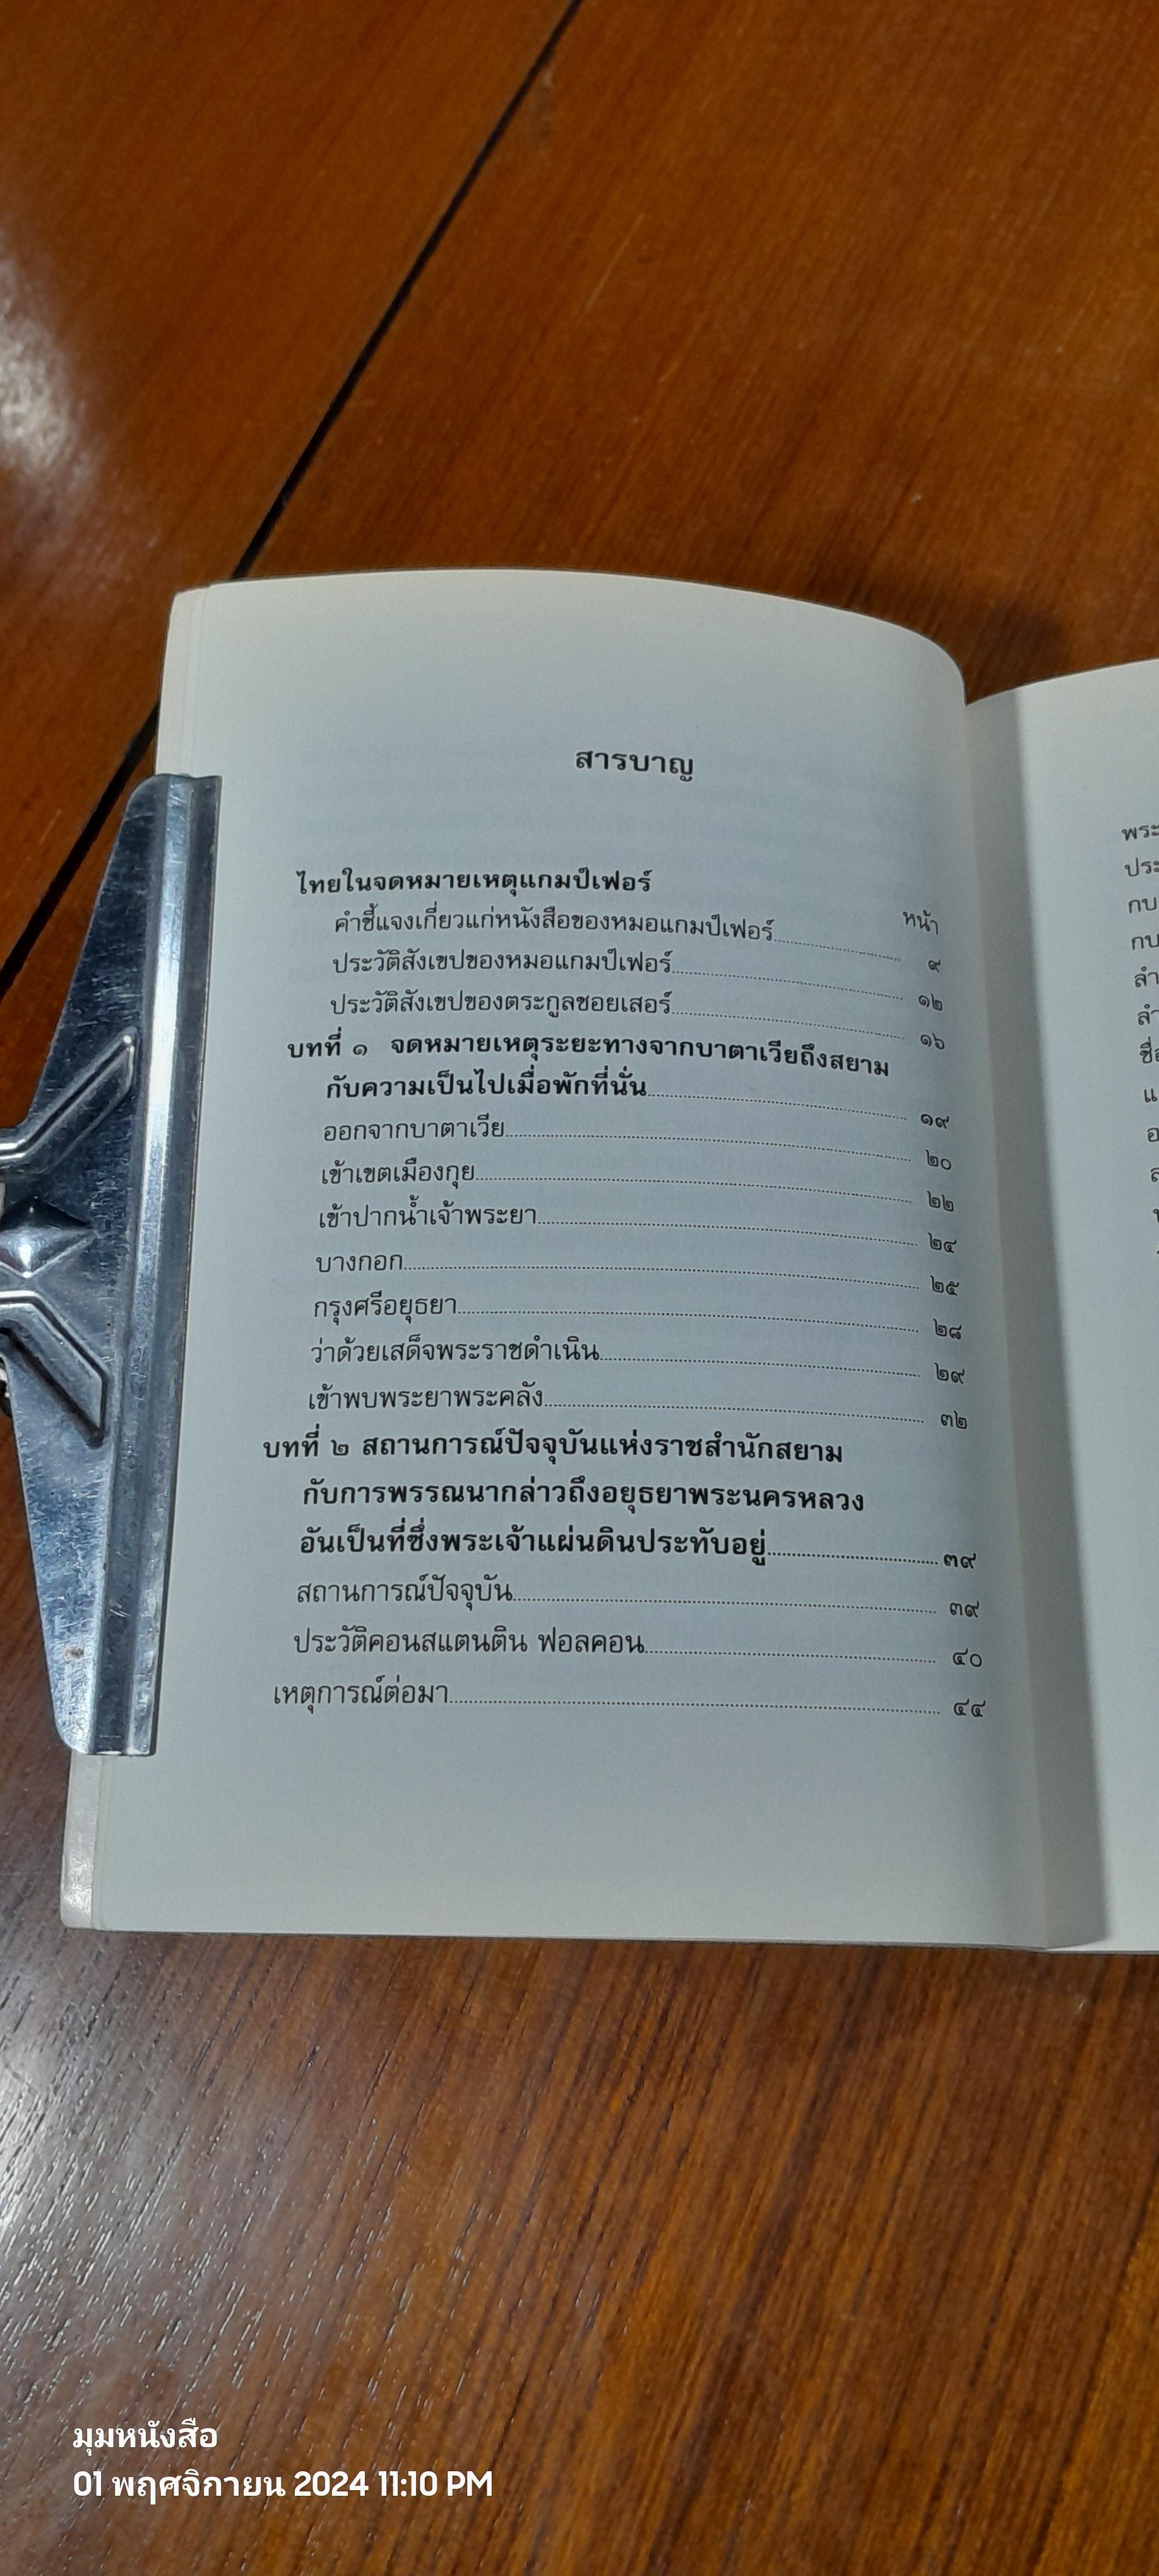 สารบาญ
ไทยในจดหมายเหตุแกมป์เฟอร์
หน้า
คำชี้แจงเกี่ยวแก่หนังสือของหมอแกมป์เฟอร์ ๙
ประวัติสังเขปของหมอแกมป์เฟอร์ ๑๒
ประวัติสังเขปของตระกูลชอยเสอร์ ๑๖
บทที่ ๑ จดหมายเหตุระยะทางจากบาตาเวียถึงสยาม
กับความเป็นไปเมื่อพักที่นั่น ๑๙
ออกจากบาตาเวีย ๒๐
เข้าเขตเมืองกุย ๒๒
เข้าปากน้ำเจ้าพระยา ๒๔
บางกอก ๒๕
กรุงศรีอยุธยา ๒๘
ว่าด้วยเสด็จพระราชดำเนิน ๒๙
เข้าพบพระยาพระคลัง ๓๒
บทที่ ๒ สถานการณ์ปัจจุบันแห่งราชสำนักสยาม
กับการพรรณนากล่าวถึงอยุธยาพระนครหลวง
อันเป็นที่ซึ่งพระเจ้าแผ่นดินประทับอยู่ ๓๙
สถานการณ์ปัจจุบัน ๓๙
ประวัติคอนสแตนติน ฟอลคอน ๔๐
เหตุการณ์ต่อมา ๔๔
มุมหนังสือ
01 พฤศจิกายน 2024 11:10 PM